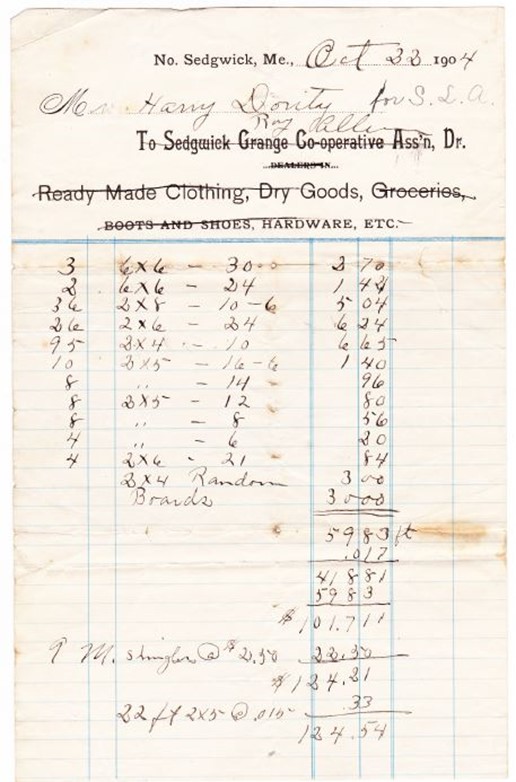 No. Sedgwick, Me., Oct 22 1904
Mr Harry Dority for S. L. A.
Roy Allen
To Sedgwick Grange Co-operative Ass'n, Dr.
DEALERS IN
Ready Made Clothing, Dry Goods, Groceries,
BOOTS AND SHOES, HARDWARE, ETC.
3 6x6 - 30 2 70
2 6x6 - 24 1 44
36 2x8 - 10-6 5 04
26 2x6 - 24 6 24
95 2x4 - 10 6 65
10 2x5 - 16-6 1 40
8 " - 14 96
8 2x5 - 12 80
8 " - 8 56
4 " - 6 20
4 2x6 - 21 84
2x4 Random 3 00
Boards 30 00
5983 ft
.017
41881
5983
$101.711
9 M. shingles @ $2.50 22.50
$124.21
22 ft 2x5 @ .015 .33
124.54